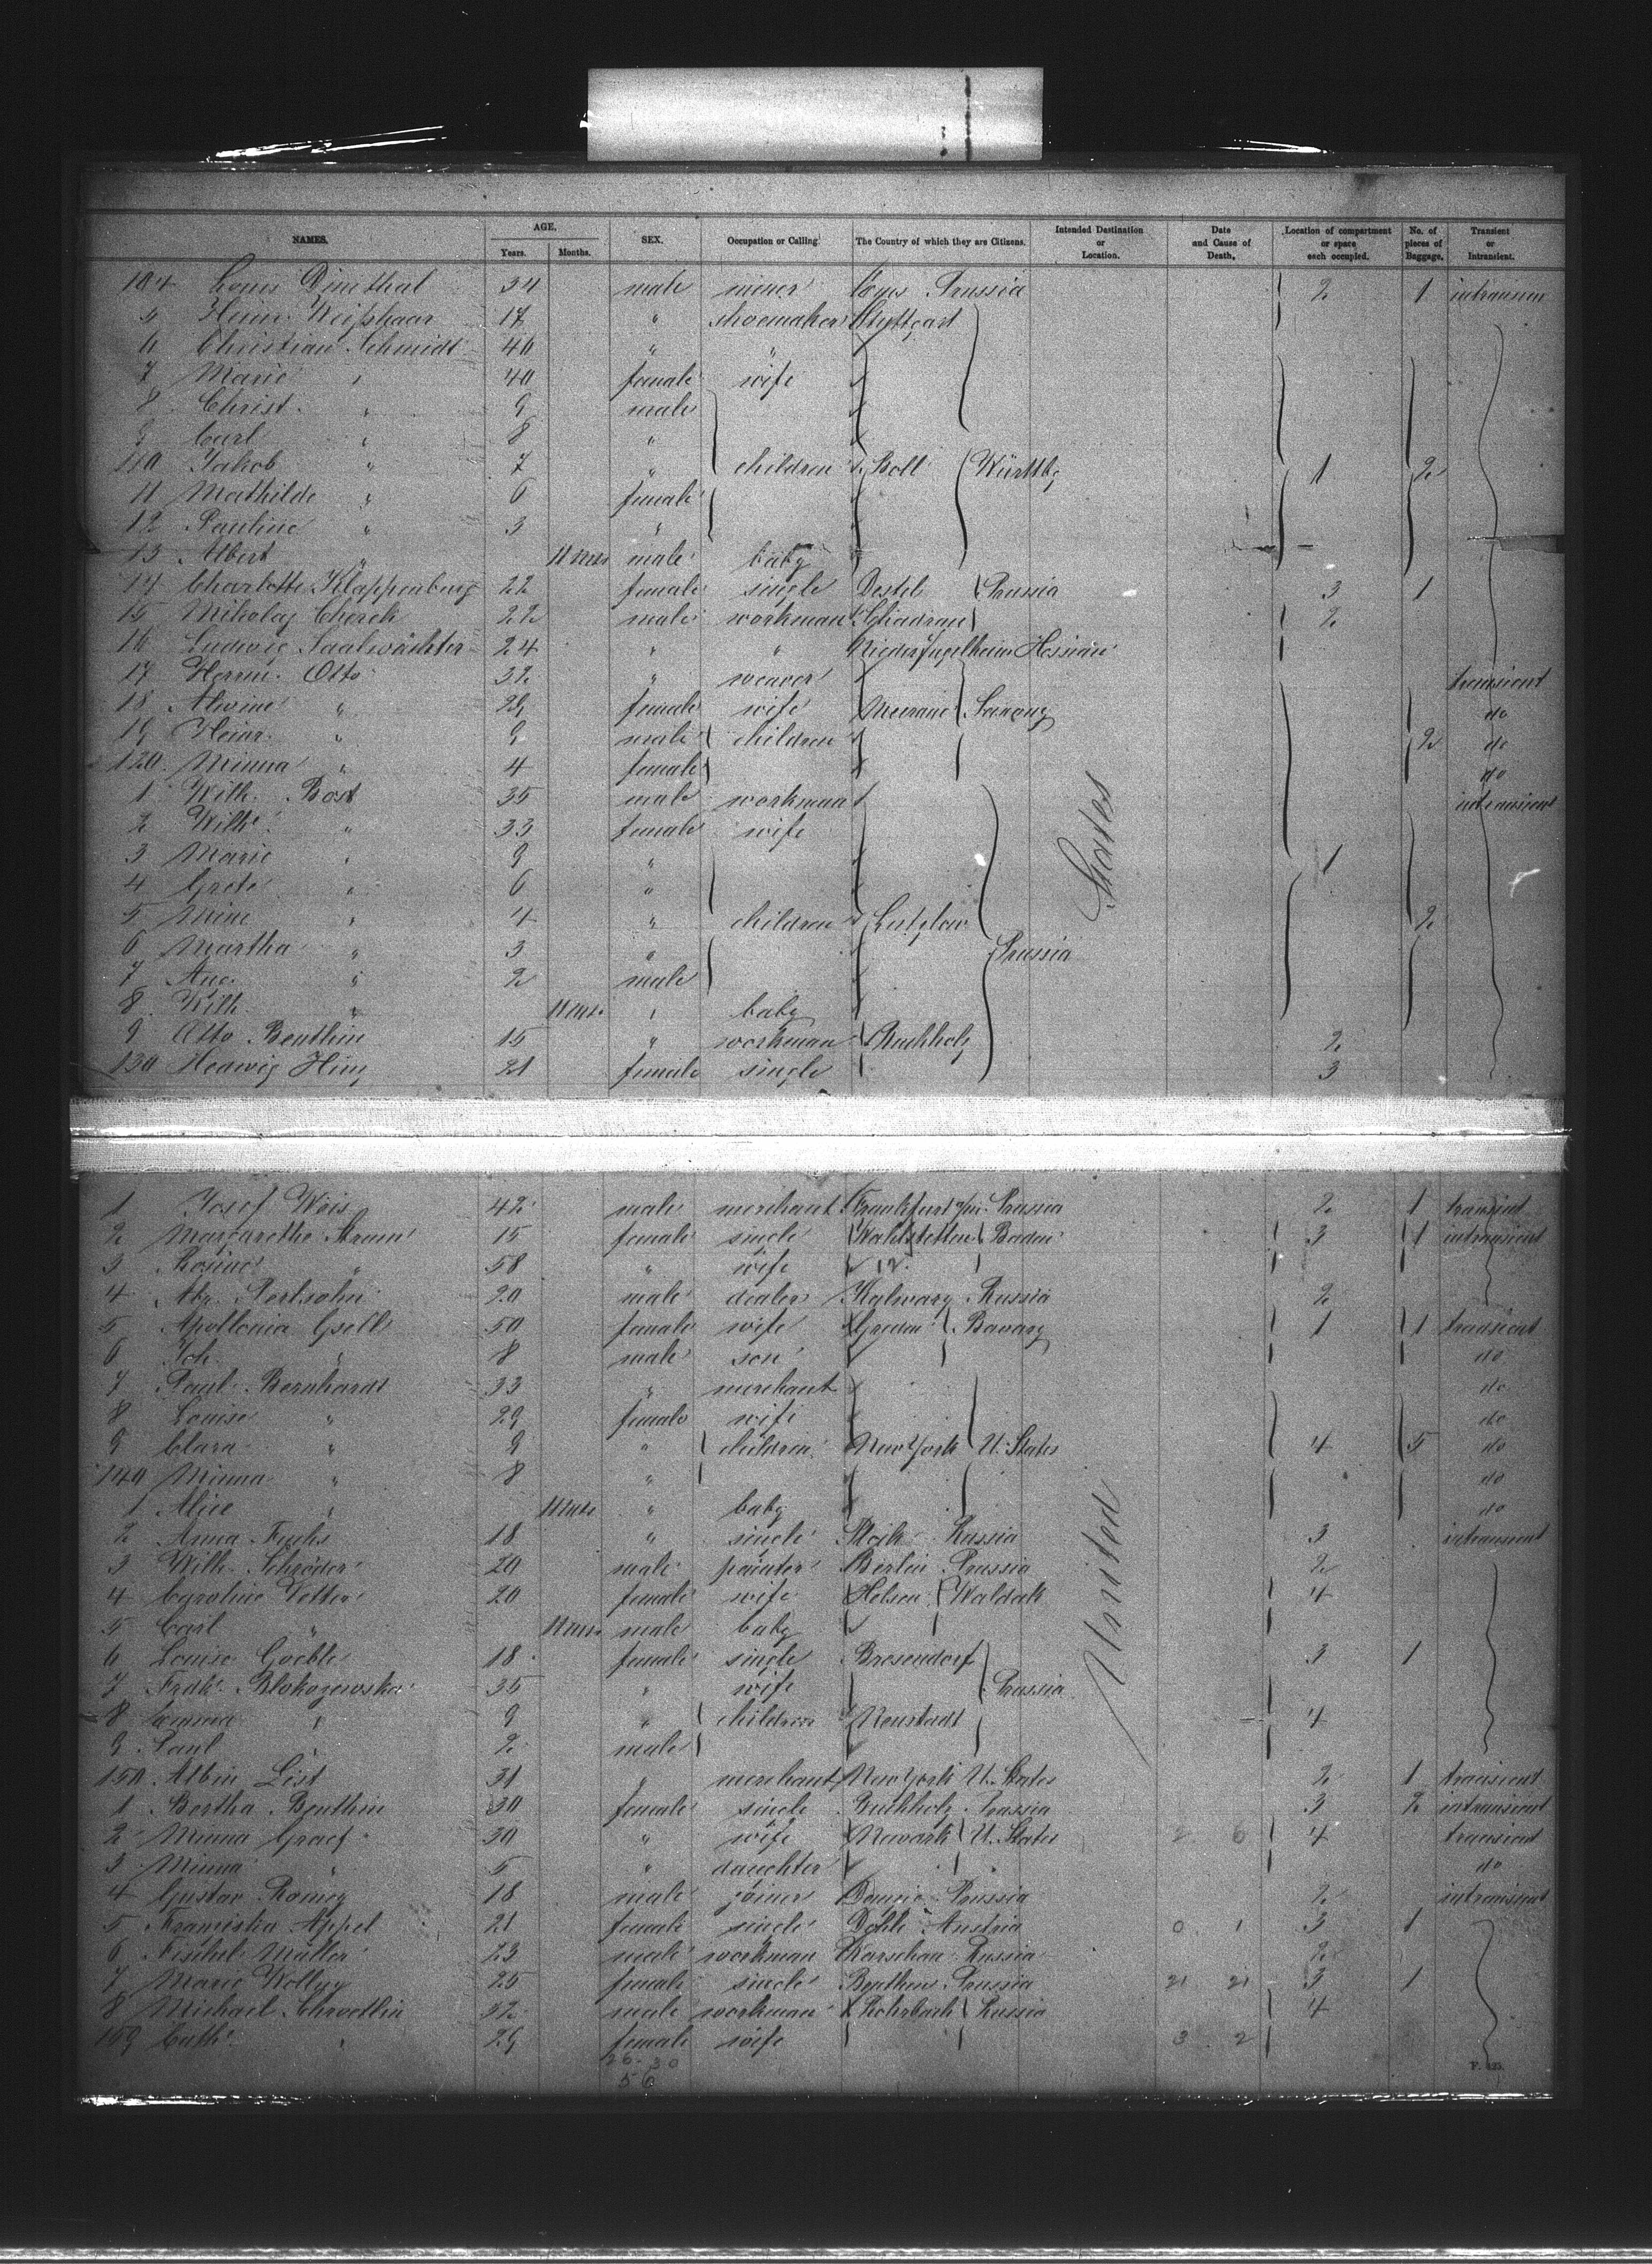 NAMES. AGE. Years. Months. SEX. Occupation or Calling. The Country of which they are Citizens. Intended Destination or Location. Date and Cause of Death. Location of compartment or space each occupied. No. of pieces of Baggage. Transient or Intransient.
104 Louis 34 male miner Prussia 2 1 intransient
5 Heinr. Weißhaar 17 " shoemaker Stuttgart
6 Christian Schmidt 40 " "
7 Marie " 40 female wife
8 Christ. " 9 male
9 Carl " 8 "
110 Jakob " 7 " children Boll Württbg 1 2
11 Mathilde " 6 female
12 Pauline " 3 "
13 Albert " 11 mos male baby
14 Charlotte Klappenburg 22 female single Prussia 3 1
15 Nikolay 22 male workman 2
16 Ludwig Saalwächter 24 " " Nieder Ingelheim Hessian
17 Herm. Otto 32 " weaver transient
18 Alwine " 29 female wife Meerane Saxony do
19 Heinr. " 9 male children 2 do
120 Minna " 4 female do
1 Wilh. Bost 35 male workman intransient
2 Wilh. " 33 female wife
3 Marie " 9 " States 1
4 Grete " 6 "
5 Mine " 4 " children Lutzlow 2
6 Martha " 3 " Prussia
7 Aug. " 2 male
8 Wilh. " 11 mos. " baby
9 Otto Benthin 15 " workman Buchholz 2
130 Hedwig Hinz 21 female single 3
1 Josef Weis 42 male merchant Frankfurt a/m. Prussia 2 1 transient
2 Margarethe 15 female single Baden 3 1 intransient
3 Rosine " 58 " wife
4 Abr. Perlsohn 20 male dealer Kalwary Russia 2
5 Apollonia Gsell 50 female wife Bavary 1 1 transient
6 Joh. " 8 male son do
7 Paul Bernhardt 33 " merchant do
8 Louise " 29 female wife do
9 Clara " 9 " children New York U. States 4 5 do
140 Minna " 8 " do
1 Alice " 11 mos " baby do
2 Anna Fuchs 18 " single Russia 3 intransient
3 Wilh. Schröder 20 male painter Berlin Prussia 2
4 Caroline Vetter 20 female wife Helsen Waldek 4
5 Carl " 11 mos. male baby United
6 Louise Goeble 18 female single Bresendorf 3 1
7 Fredk. Blokazewska 35 " wife Prussia
8 Emma " 9 " children Neustadt 4
9 Paul " 2 male
150 Albin List 31 " merchant New York U. States 2 1 transient
1 Bertha Benthin 30 female single Buchholz Prussia 3 2 intransient
2 Minna Graef 30 " wife Newark U. States 2 6 4 transient
3 Minna " 5 " daughter do
4 Gustav 18 male joiner Prussia 2 intransient
5 Franziska Appel 21 female single Austria 0 1 3 1
6 Fischel Müller 23 male workman Warschau Russia 2
7 Marie 25 female single Beuthen Prussia 21 21 3 1
8 Michael 32 male workman Rohrbach Russia 4
159 Cath. " 29 female wife 3 2
26 - 30
56